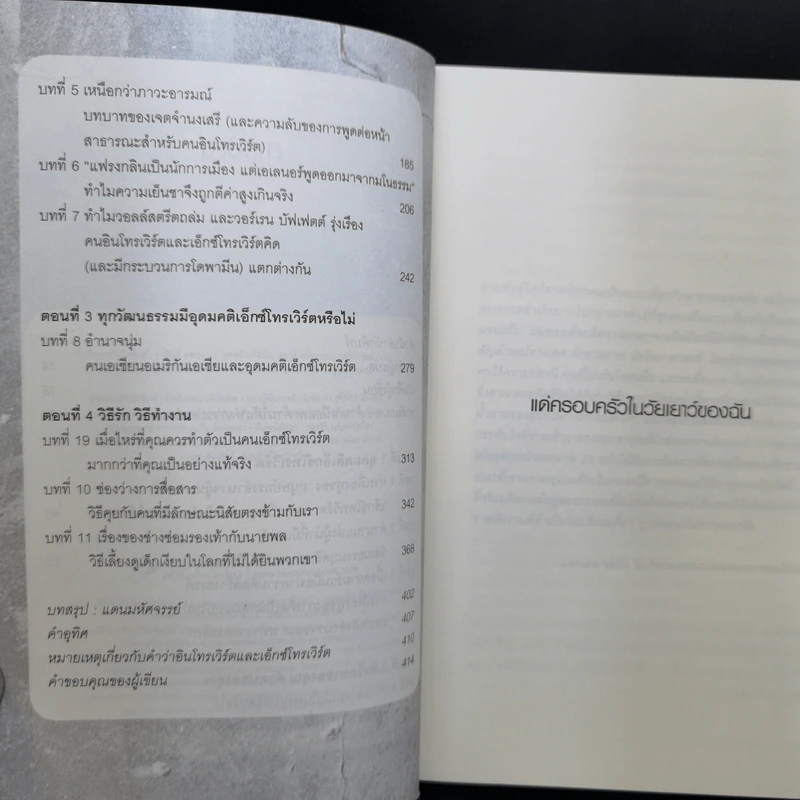 บทที่ 5 เหนือกว่าภาวะอารมณ์
บทบาทของเจตจำนงเสรี (และความลับของการพูดต่อหน้า
สาธารณะสำหรับคนอินโทรเวิร์ต) 185
บทที่ 6 "แฟรงกลินเป็นนักการเมือง แต่เอเลนอร์พูดออกมาจากมโนธรรม"
ทำไมความเย็นชาจึงถูกตีค่าสูงเกินจริง 206
บทที่ 7 ทำไมวอลล์สตรีตถล่ม และวอร์เรน บัฟเฟตต์ รุ่งเรือง
คนอินโทรเวิร์ตและเอ็กซ์โทรเวิร์ตคิด
(และมีกระบวนการโดพามีน) แตกต่างกัน 242
ตอนที่ 3 ทุกวัฒนธรรมมีอุดมคติเอ็กซ์โทรเวิร์ตหรือไม่
บทที่ 8 อำนาจนุ่ม
คนเอเชียนอเมริกันเอเชียและอุดมคติเอ็กซ์โทรเวิร์ต 279
ตอนที่ 4 วิธีรัก วิธีทำงาน
บทที่ 19 เมื่อไหร่ที่คุณควรทำตัวเป็นคนเอ็กซ์โทรเวิร์ต
มากกว่าที่คุณเป็นอย่างแท้จริง 313
บทที่ 10 ช่องว่างการสื่อสาร
วิธีคุยกับคนที่มีลักษณะนิสัยตรงข้ามกับเรา 342
บทที่ 11 เรื่องของช่างซ่อมรองเท้ากับนายพล
วิธีเลี้ยงดูเด็กเงียบในโลกที่ไม่ได้ยินพวกเขา 368
บทสรุป : แดนมหัศจรรย์ 402
คำอุทิศ 407
หมายเหตุเกี่ยวกับคำว่าอินโทรเวิร์ตและเอ็กซ์โทรเวิร์ต 410
คำขอบคุณของผู้เขียน 414
แด่ครอบครัวในวัยเยาว์ของฉัน